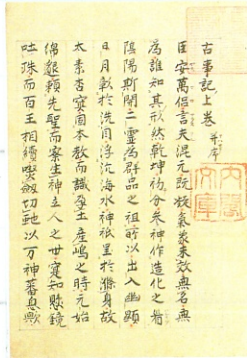 古事記上卷 并序
臣安萬侶言夫混元既凝氣象未效無名無
為誰知其形然乾坤初分參神作造化之首
陰陽斯開二靈為群品之祖所以出入幽顯
日月彰於洗目浮沈海水神祇呈於滌身故
太素杳冥因本教而識孕土產嶋之時元始
綿邈賴先聖而察生神立人之世寔知懸鏡
吐珠而百王相續喫釼切虵以万神蕃息歟